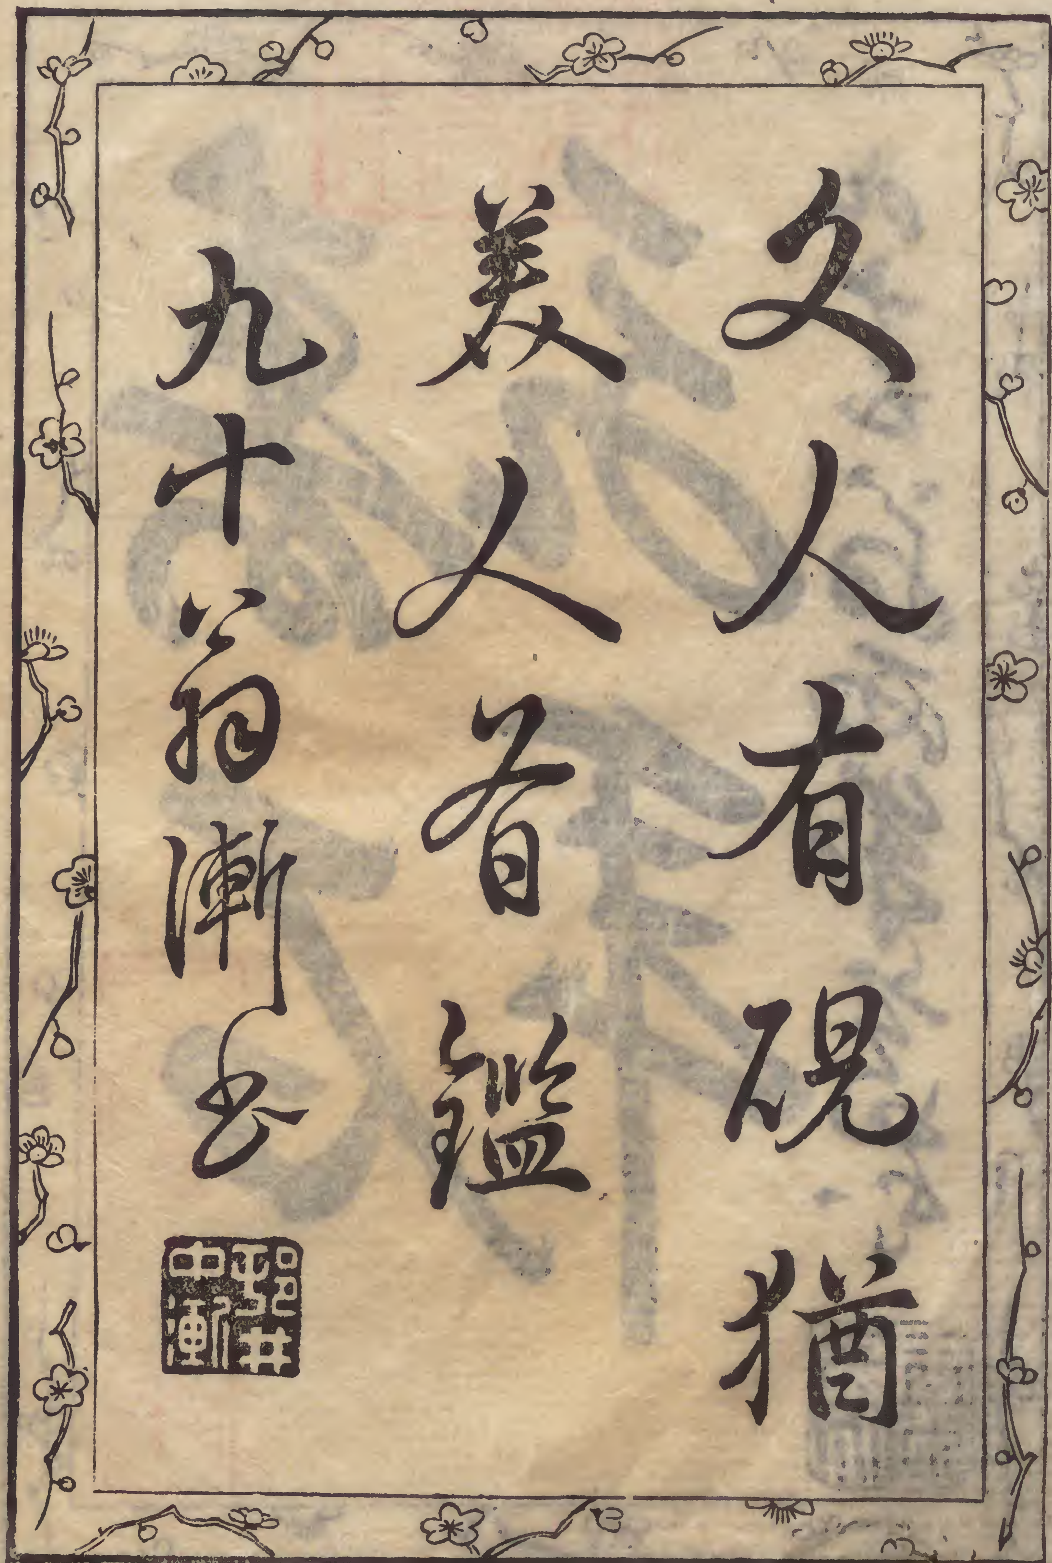 文人有硯猶
美人有鑑
九十翁漸書
邨井
中漸